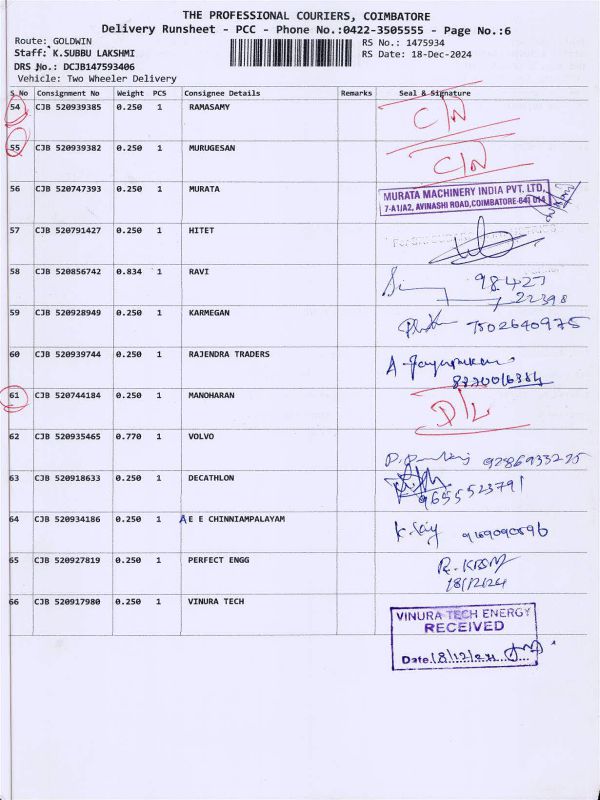 THE PROFESSIONAL COURIERS, COIMBATORE
Delivery Runsheet - PCC - Phone No.:0422-3505555 - Page No.:6
Route: GOLDWIN RS No.: 1475934
Staff: K.SUBBU LAKSHMI RS Date: 18-Dec-2024
DRS No.: DCJB147593406
Vehicle: Two Wheeler Delivery
S.No Consignment No Weight PCS Consignee Details Remarks Seal & Signature
54 CJB 520939385 0.250 1 RAMASAMY C/N
55 CJB 520939382 0.250 1 MURUGESAN C/N
56 CJB 520747393 0.250 1 MURATA
MURATA MACHINERY INDIA PVT. LTD,
7-A1/A2, AVINASHI ROAD,COIMBATORE-641 014
57 CJB 520791427 0.250 1 HITET
58 CJB 520856742 0.834 1 RAVI 98427
22398
59 CJB 520928949 0.250 1 KARMEGAN 7502640975
60 CJB 520939744 0.250 1 RAJENDRA TRADERS
8220016384
61 CJB 520744184 0.250 1 MANOHARAN D/L
62 CJB 520935465 0.770 1 VOLVO
9286933225
63 CJB 520918633 0.250 1 DECATHLON
9655523791
64 CJB 520934186 0.250 1 AE E CHINNIAMPALAYAM
65 CJB 520927819 0.250 1 PERFECT ENGG
18/12/24
66 CJB 520917980 0.250 1 VINURA TECH
VINURA TECH ENERGY
RECEIVED
Date 18/12/24